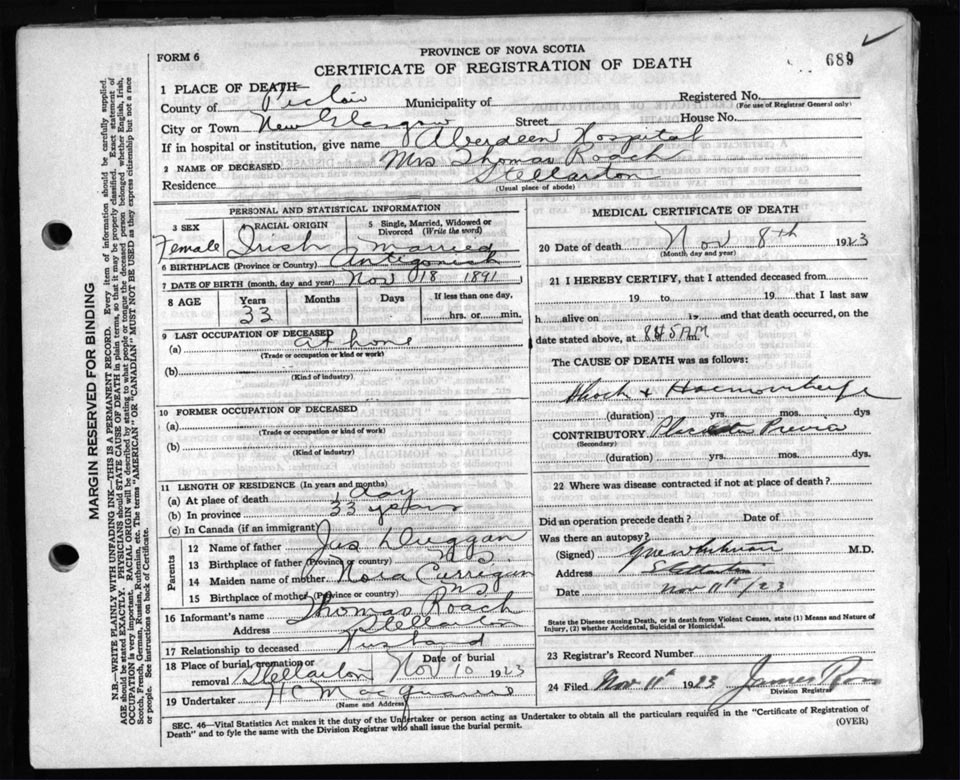 FORM 6
PROVINCE OF NOVA SCOTIA
CERTIFICATE OF REGISTRATION OF DEATH
689
1 PLACE OF DEATH
County of Pictou Municipality of
Registered No.
(For use of Registrar General only)
City or Town New Glasgow Street House No.
If in hospital or institution, give name Aberdeen Hospital
2 NAME OF DECEASED Mrs Thomas Roach
Residence Stellarton
(Usual place of abode)
PERSONAL AND STATISTICAL INFORMATION
3 SEX 4 RACIAL ORIGIN 5 Single, Married, Widowed or Divorced (Write the word)
Female Irish Married
6 BIRTHPLACE (Province or Country) Antigonish
7 DATE OF BIRTH (month, day and year) Nov 18 1891
8 AGE Years Months Days If less than one day,
33 hrs. or min.
9 LAST OCCUPATION OF DECEASED
(a) at home
(Trade or occupation or kind or work)
(b)
(Kind of industry)
10 FORMER OCCUPATION OF DECEASED
(a)
(Trade or occupation or kind or work)
(b)
(Kind of industry)
11 LENGTH OF RESIDENCE (In years and months)
(a) At place of death 1 day
(b) In province 33 years
(c) In Canada (if an immigrant)
Parents
12 Name of father Jas Duggan
13 Birthplace of father (Province or country) NS
14 Maiden name of mother Nora Currigan
15 Birthplace of mother (Province or country) NS
16 Informant's name Thomas Roach
Address Stellarton
17 Relationship to deceased Husband
18 Place of burial, cremation or removal Stellarton Date of burial Nov 10 1923
19 Undertaker H C MacQuarrie
(Name and Address)
MEDICAL CERTIFICATE OF DEATH
20 Date of death Nov 8th 1923
(Month, day and year)
21 I HEREBY CERTIFY, that I attended deceased from
19 to 19 that I last saw
h alive on 19 and that death occurred, on
date stated above, at 8.45 AM m.
The CAUSE OF DEATH was as follows:
Shock + Haemorrhage
(duration) yrs. mos. dys
CONTRIBUTORY Placenta Previa
(Secondary)
(duration) yrs. mos. dys.
22 Where was disease contracted if not at place of death?
Did an operation precede death? Date of
Was there an autopsy?
(Signed) M.D.
Address Stellarton
Date Nov 11th/23
State the Disease causing Death, or in death from Violent Causes, state (1) Means and Nature of Injury, (2) whether Accidental, Suicidal or Homicidal.
23 Registrar's Record Number
24 Filed Nov 11th 1923 James Ross
Division Registrar
SEC. 46—Vital Statistics Act makes it the duty of the Undertaker or person acting as Undertaker to obtain all the particulars required in the "Certificate of Registration of
Death" and to fyle the same with the Division Registrar who shall issue the burial permit.
(OVER)
MARGIN RESERVED FOR BINDING
N.B.—WRITE PLAINLY WITH UNFADING INK—THIS IS A PERMANENT RECORD. Every item of information should be carefully supplied.
AGE should be stated EXACTLY. PHYSICIANS should STATE CAUSE OF DEATH in plain terms, so that it may be properly classified. Exact statement of
OCCUPATION is very important. RACIAL ORIGIN will be described by stating to what people or tongue the deceased person belonged whether English, Irish,
Scotch, French, German, Russian, Ruthenian, etc. The terms "AMERICAN" OR "CANADIAN" MUST NOT BE USED as they express citizenship but not a race
or people. See instructions on back of Certificate.